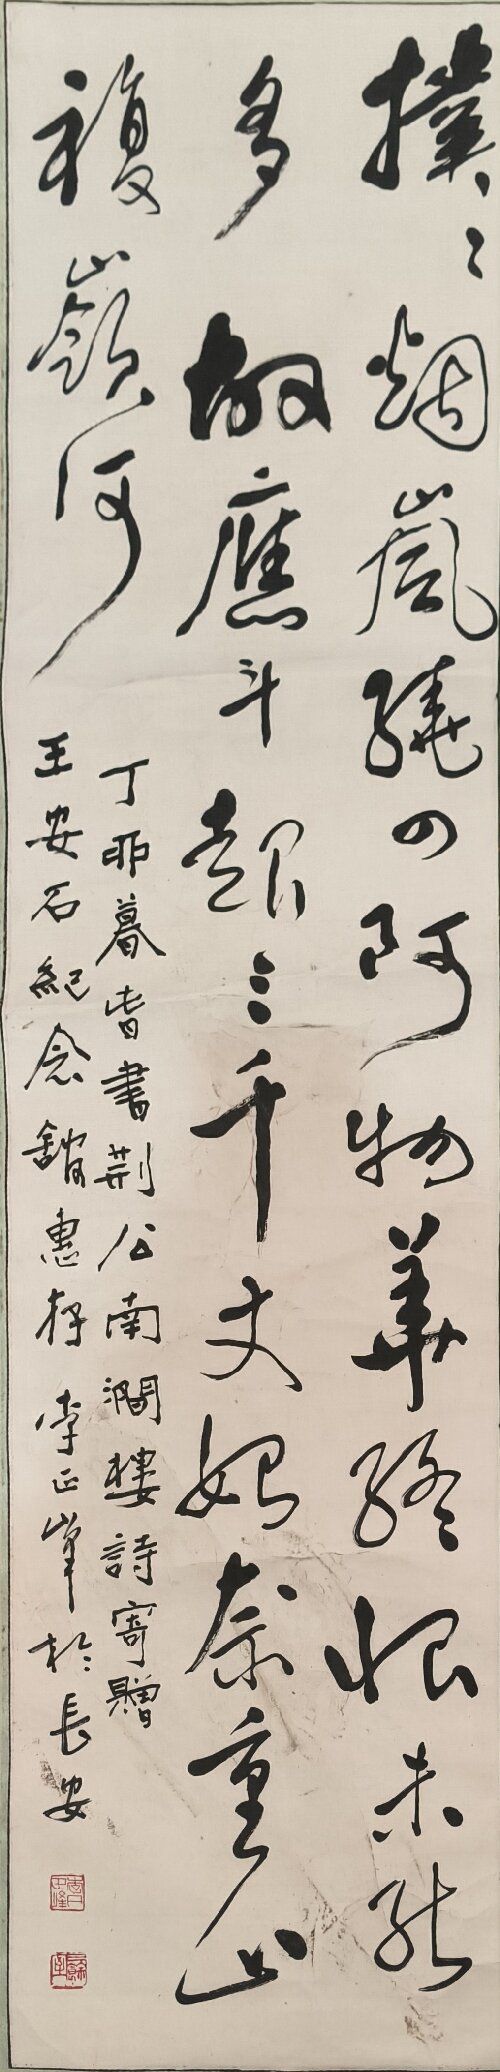 撲〻烟嵐繞四阿物華終恨未能
多故應斗起三千丈始奈重山
複嶺何
丁卯暮春書荆公南澗樓詩寄贈
王安石紀念館惠存 李正峰於長安